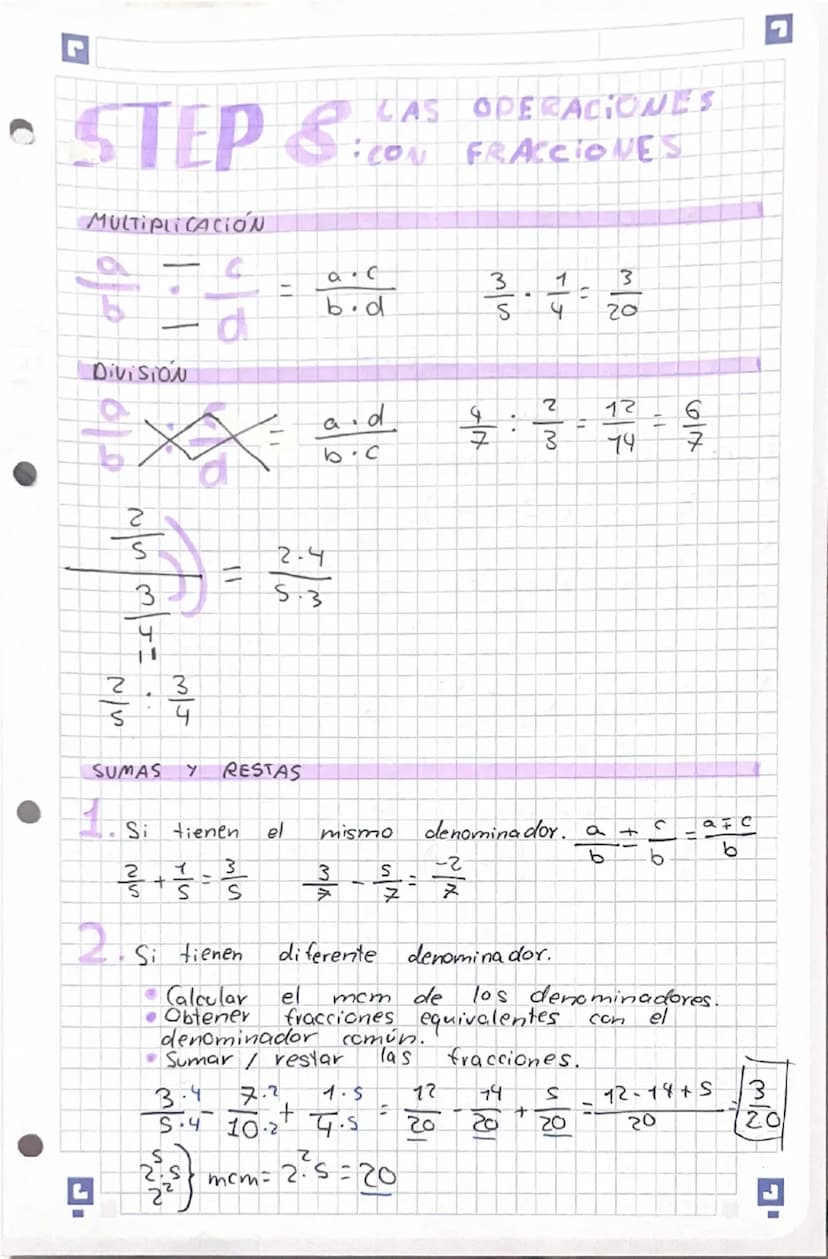 STEP 8 : LAS OPERACIONES
CON FRACCIONES
MULTIPLICACIÓN
a/b · c/d = a·c / b·d    3/5 · 1/4 = 3/20
DIVISIÓN
a/b : c/d = a·d / b·c    4/7 : 2/3 = 12/14 = 6/7
2/5 / 3/4 = 2·4 / 5·3
=
2/5 : 3/4
SUMAS Y RESTAS
1. Si tienen el mismo denominador. a/b ± c/b = a∓c / b
2/5 + 1/5 = 3/5    3/7 - 5/7 = -2/7
2. Si tienen diferente denominador.
• Calcular el mcm de los denominadores.
• Obtener fracciones equivalentes con el
denominador común.
• Sumar / restar las fracciones.
3·4/5·4 - 7·2/10·2 + 1·5/4·5 = 12/20 - 14/20 + 5/20 = 12-14+5 / 20 = 3/20
5
2·5
2² } mcm = 2²·5 = 20